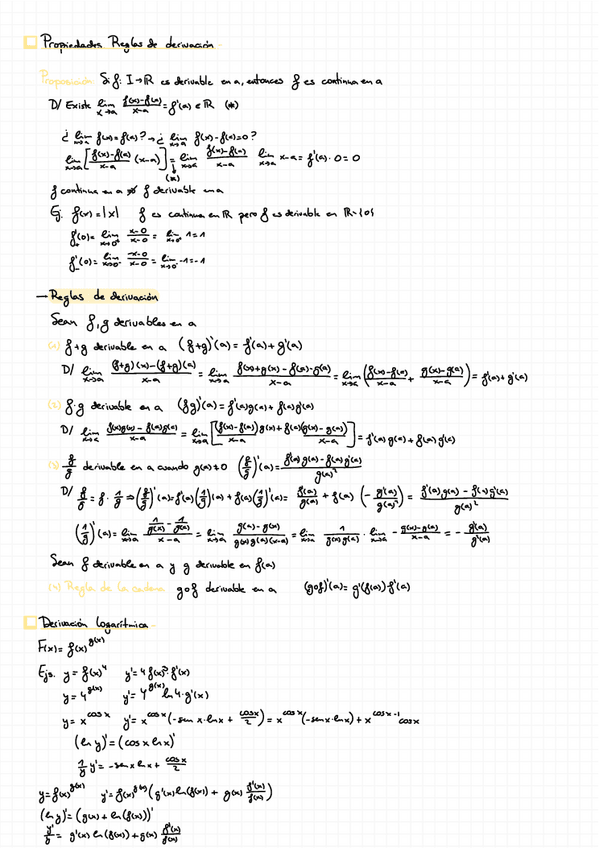 Propiedades Reglas de derivación
Proposición Si f: I→ℝ es derivable en a, entonces f es continua en a
D/ Existe lim x→a (f(x)-f(a))/(x-a) = f'(a) ∈ ℝ (*)
¿ lim x→a f(x)=f(a)? → ¿ lim x→a f(x)-f(a)=0?
lim x→a [(f(x)-f(a))/(x-a) (x-a)] = lim x→a (f(x)-f(a))/(x-a) lim x→a x-a = f'(a)·0=0
(*)
f continua en a ⇏ f derivable en a
Ej: f(x)=|x| f es continua en ℝ pero f es derivable en ℝ-{0}
f'₊(0)= lim x→0⁺ (x-0)/(x-0) = lim x→0⁺ 1=1
f'₋(0)= lim x→0⁻ (-x-0)/(x-0) = lim x→0⁻ -1=-1
→ Reglas de derivación
Sean f, g derivables en a
(1) f+g derivable en a (f+g)'(a)= f'(a)+g'(a)
D/ lim x→a ((f+g)(x)-(f+g)(a))/(x-a) = lim x→a (f(x)+g(x)-f(a)-g(a))/(x-a) = lim x→a ((f(x)-f(a))/(x-a) + (g(x)-g(a))/(x-a)) = f'(a)+g'(a)
(2) f·g derivable en a (fg)'(a)= f'(a)g(a)+f(a)g'(a)
D/ lim x→a (f(x)g(x)-f(a)g(a))/(x-a) = lim x→a [((f(x)-f(a))g(x)+f(a)(g(x)-g(a)))/(x-a)] = f'(a)g(a)+f(a)g'(a)
(3) f/g derivable en a cuando g(a)≠0 (f/g)'(a)= (f'(a)g(a)-f(a)g'(a))/g(a)²
D/ f/g = f·1/g ⇒ (f/g)'(a)=f'(a)(1/g)(a)+f(a)(1/g)'(a)= f'(a)/g(a) + f(a)(-g'(a)/g(a)²) = (f'(a)g(a)-f(a)g'(a))/g(a)²
(1/g)'(a)= lim x→a (1/g(x) - 1/g(a))/(x-a) = lim x→a (g(a)-g(x))/(g(x)g(a)(x-a)) = lim x→a 1/(g(x)g(a)) · lim x→a -(g(x)-g(a))/(x-a) = -g'(a)/g²(a)
Sean f derivable en a y g derivable en f(a)
(4) Regla de la cadena g∘f derivable en a (g∘f)'(a)= g'(f(a))f'(a)
Derivación logarítmica
F(x)= f(x)^g(x)
Ejs. y= f(x)⁴ y'=4f(x)³·f'(x)
y=4^g(x) y'=4^g(x) ln 4·g'(x)
y= x^cos x y'= x^cos x (-sen x·ln x + cos x/2) = x^cos x (-sen x·ln x) + x^(cos x-1) cos x
(ln y)'=(cos x ln x)'
1/y y'= -sen x ln x + cos x/2
y=f(x)^g(x) y'=f(x)^g(x) (g'(x)ln(f(x)) + g(x) f'(x)/f(x))
(ln y)'=(g(x) + ln(f(x)))'
y'/y = g'(x) ln(f(x))+g(x) f'(x)/f(x)